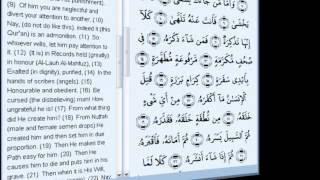 (9). Of him you are neglectful and
divert your attention to another, (10)
Nay, (do not do like this), indeed it (this
Qur'an) is an admonition. (11) So
whosoever wills, let him pay attention to
it. (12) (It is) in Records held (greatly)
in honour (Al-Lauh Al-Mahfuz), (13)
Exalted (in dignity), purified, (14) In the
hands of scribes (angels). (15)
Honourable and obedient. (16) Be
cursed (the disbelieving) man! How
ungrateful he is! (17) From what thing
did He create him? (18) From Nutfah
(male and female semen drops) He
created him and then set him in due
proportion. (19) Then He makes the
Path easy for him. (20) Then He
causes him to die and puts him in his
grave. (21) Then when it is His Will,
(22) Nay,
وَأَمَّا مَن جَآءَكَ يَسْعَىٰ
يَخْشَىٰ فَأَنتَ عَنْهُ تَلَهَّىٰ كَلَّآ
إِنَّهَا تَذْكِرَةٌ فَمَن شَآءَ ذَكَرَهُۥ فِى
صُحُفٍ مُّكَرَّمَةٍ مَّرْفُوعَةٍ مُّطَهَّرَةٍۭ
بِأَيْدِى سَفَرَةٍ كِرَامٍۭ بَرَرَةٍ قُتِلَ
ٱلْإِنسَٰنُ مَآ أَكْفَرَهُۥ مِنْ أَىِّ شَىْءٍ
خَلَقَهُۥ مِن نُّطْفَةٍ خَلَقَهُۥ فَقَدَّرَهُۥ
ثُمَّ ٱلسَّبِيلَ يَسَّرَهُۥ ثُمَّ أَمَاتَهُۥ فَأَقْبَرَهُۥ
ثُمَّ إِذَا شَآءَ أَنشَرَهُۥ كَلَّا لَمَّا